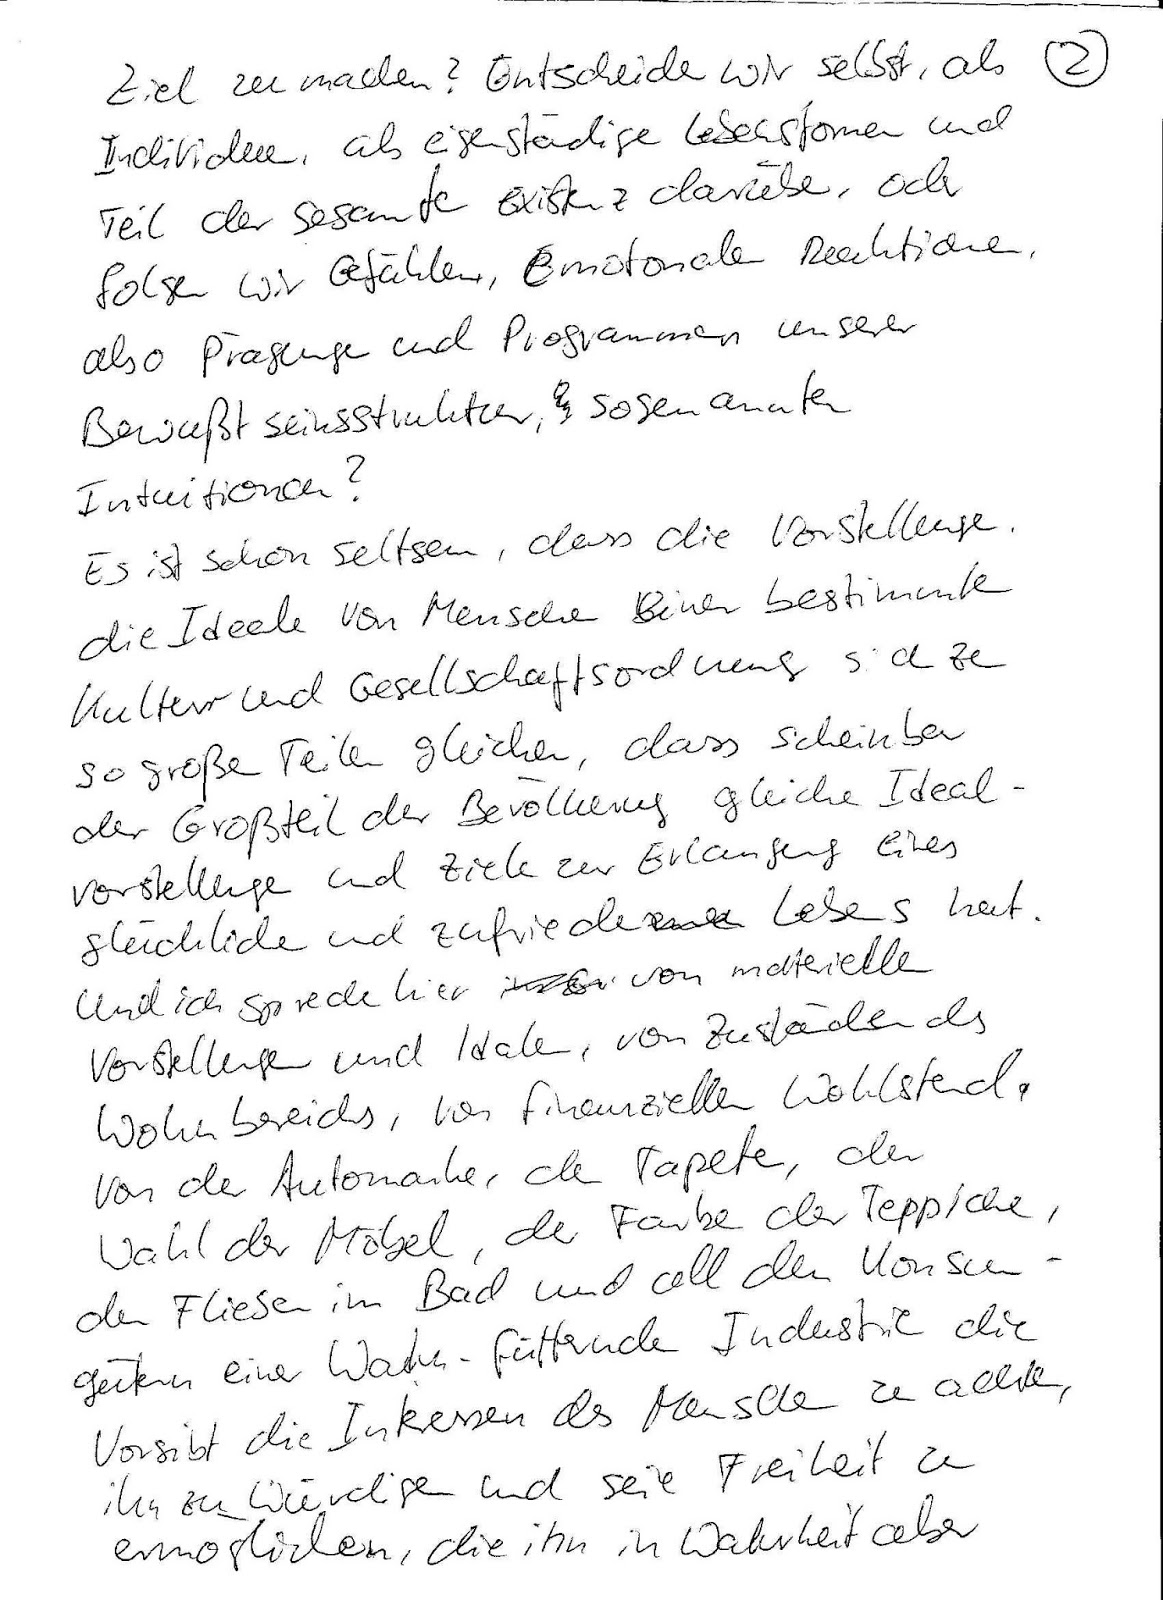 Ziel zu machen? Entscheiden wir selbst, als ②
Individuen, als eigenständige Lebensformen und
Teil der gesamten Existenz darüber, oder
folgen wir Gefühlen, Emotionalen Reaktionen,
also Prägungen und Programmen unserer
Bewußtseinsstruktur, sogenannten
Intuitionen?
Es ist schon seltsam, dass die Vorstellungen,
die Ideale von Menschen Einer bestimmten
Kultur und Gesellschaftsordnung sich zu
so große Teilen gleichen, dass scheinbar
der Großteil der Bevölkerung gleiche Ideal-
vorstellungen und Ziele zur Erlangung eines
glücklichen und zufriedenen Lebens hat.
Und ich spreche hier von materiellen
Vorstellungen und Idealen, von Zuständen des
Wohnbereichs, von finanziellen Wohlstand,
von der Automarke, der Tapete, der
Wahl der Möbel, der Farbe der Teppiche,
den Fliesen im Bad und all den Konsum-
gütern einer Wahn-fütternden Industrie die
Vorgibt die Interessen des Menschen zu achten,
ihn zu Würdigen und seine Freiheit zu
ermöglichen, die ihn in Wahrheit aber